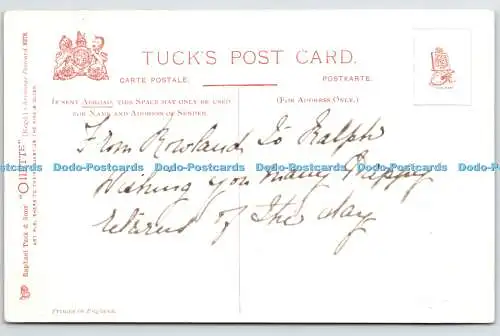 TUCK'S POST CARD.
CARTE POSTALE.
POSTKARTE.
IF SENT ABROAD, THIS SPACE MAY ONLY BE USED
FOR NAME AND ADDRESS OF SENDER.
(FOR ADDRESS ONLY.)
From Rowland to Ralph
Wishing you many Happy
returns of the day
Dodo-Postcards Dodo-Postcards Dodo-Postcards Dodo-Postcards Dodo-Postcards
Raphael Tuck & Sons' "OILETTE" [Regd.]
ART PUBLISHERS TO THEIR MAJESTIES THE KING & QUEEN.
PRINTED IN ENGLAND.